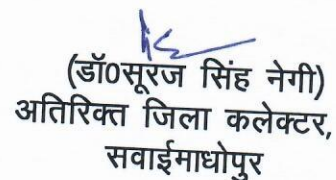 (डॉ0सूरज सिंह नेगी)
अतिरिक्त जिला कलेक्टर,
सवाईमाधोपुर